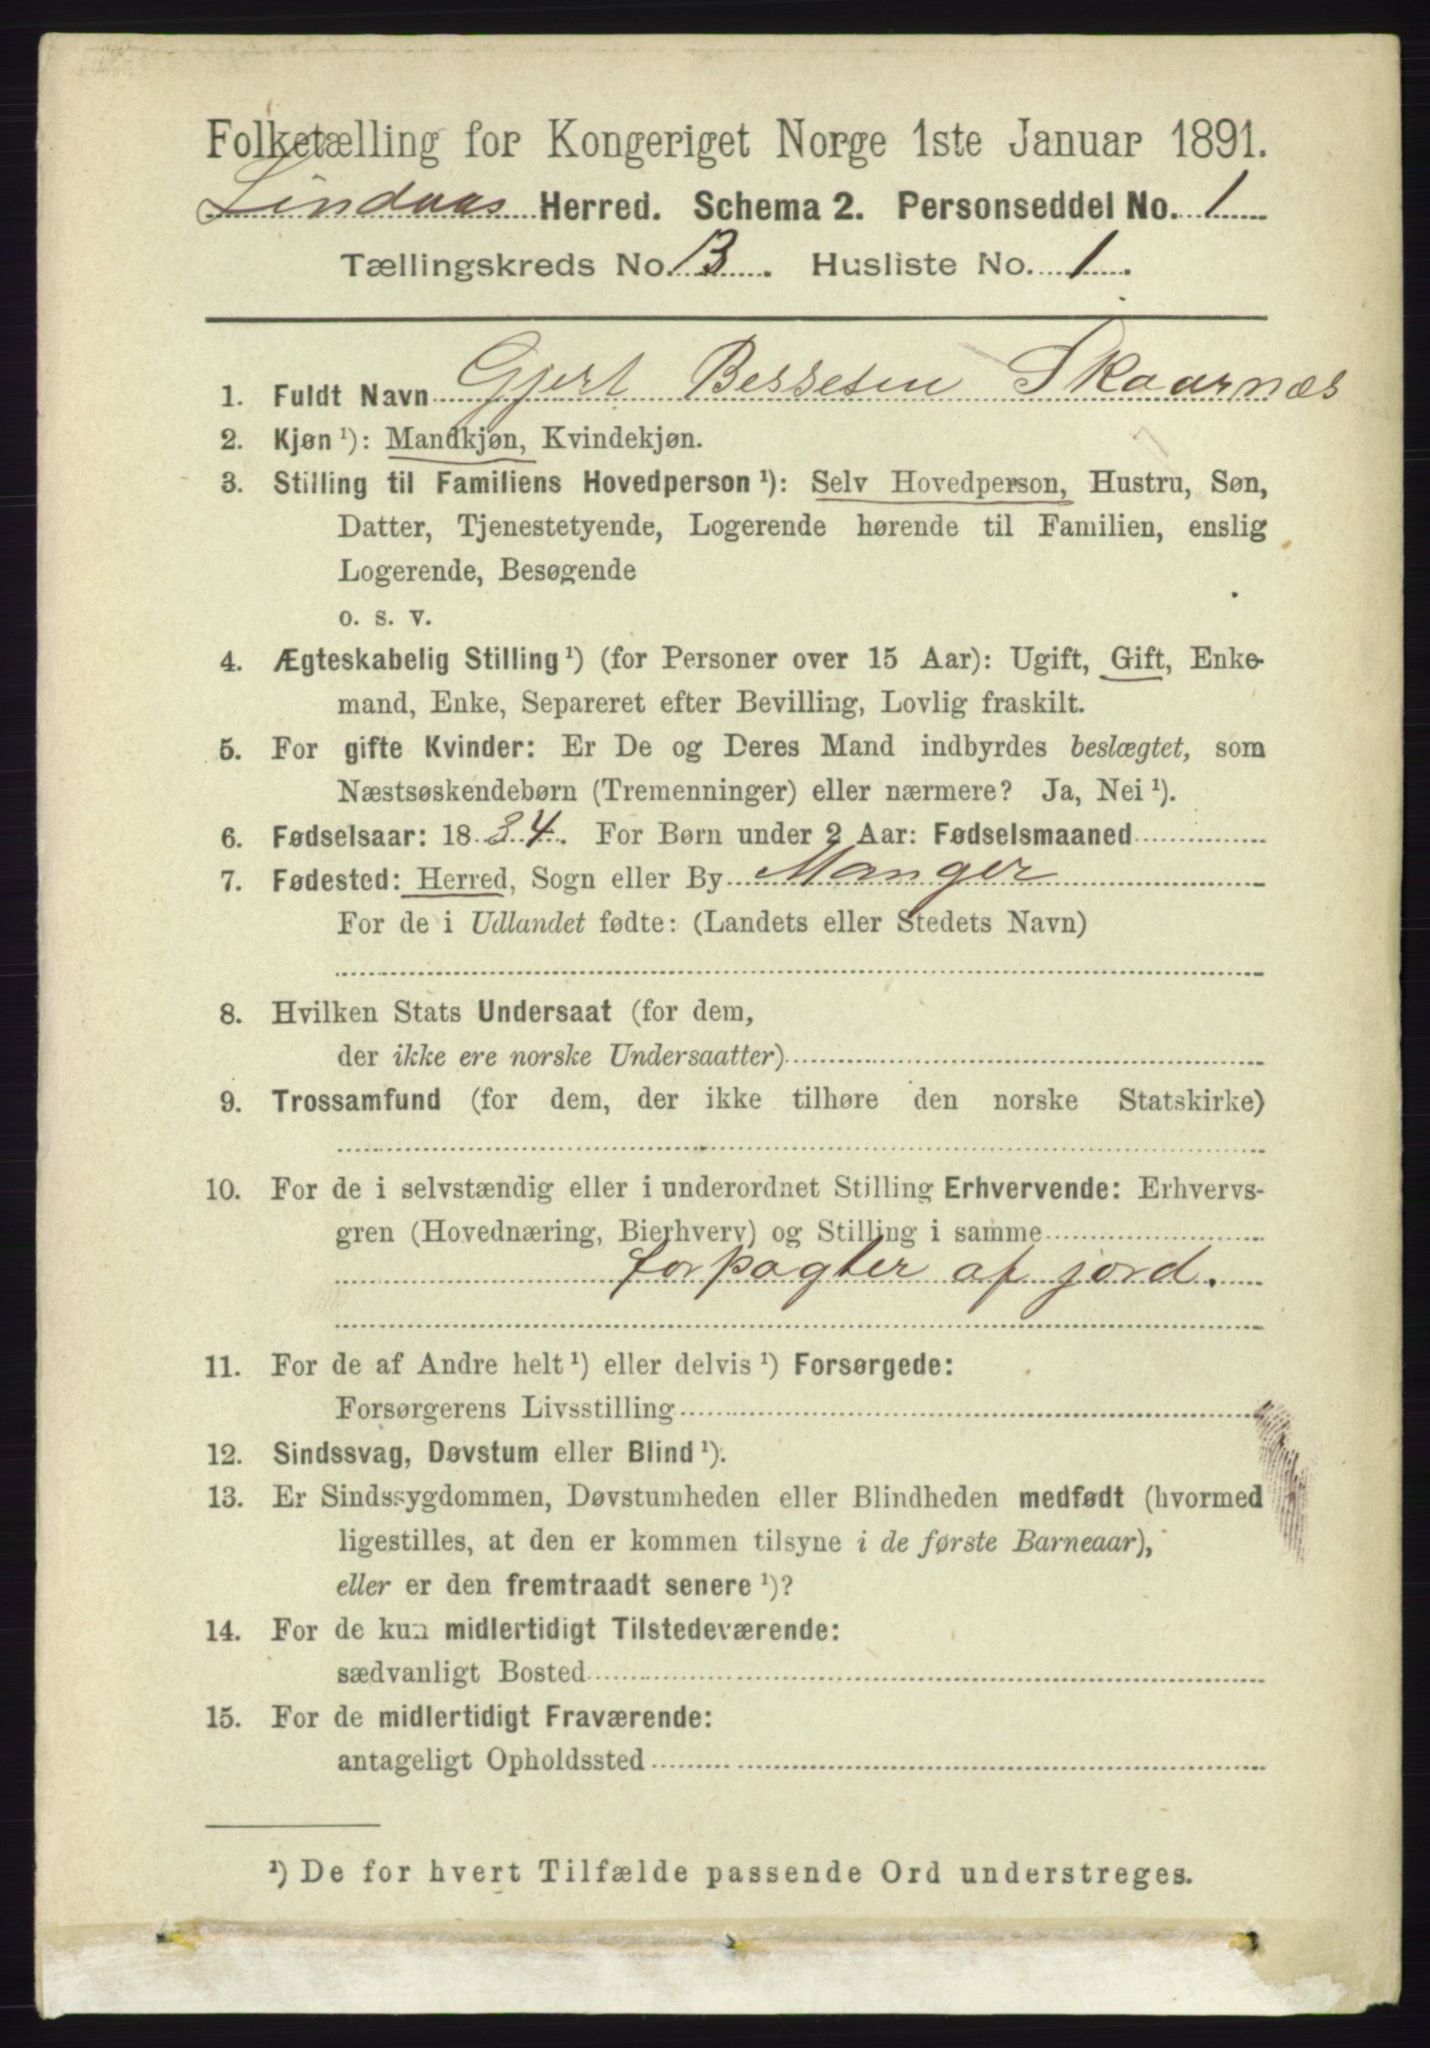 Folketælling for Kongeriget Norge 1ste Januar 1891.
Lindaas Herred. Schema 2. Personseddel No. 1
Tællingskreds No. 13. Husliste No. 1.
1. Fuldt Navn Gjert Bessesen Skaarnæs
2. Kjøn ¹): Mandkjøn, Kvindekjøn.
3. Stilling til Familiens Hovedperson ¹): Selv Hovedperson, Hustru, Søn,
Datter, Tjenestetyende, Logerende hørende til Familien, enslig
Logerende, Besøgende
o. s. v.
4. Ægteskabelig Stilling ¹) (for Personer over 15 Aar): Ugift, Gift, Enke-
mand, Enke, Separeret efter Bevilling, Lovlig fraskilt.
5. For gifte Kvinder: Er De og Deres Mand indbyrdes beslægtet, som
Næstsøskendebørn (Tremenninger) eller nærmere? Ja, Nei ¹).
6. Fødselsaar: 1834. For Børn under 2 Aar: Fødselsmaaned
7. Fødested: Herred, Sogn eller By Manger
For de i Udlandet fødte: (Landets eller Stedets Navn)
8. Hvilken Stats Undersaat (for dem,
der ikke ere norske Undersaatter)
9. Trossamfund (for dem, der ikke tilhøre den norske Statskirke)
10. For de i selvstændig eller i underordnet Stilling Erhvervende: Erhvervs-
gren (Hovednæring, Bierhverv) og Stilling i samme
forpagter af jord.
11. For de af Andre helt ¹) eller delvis ¹) Forsørgede:
Forsørgerens Livsstilling
12. Sindssvag, Døvstum eller Blind ¹).
13. Er Sindssygdommen, Døvstumheden eller Blindheden medfødt (hvormed
ligestilles, at den er kommen tilsyne i de første Barneaar),
eller er den fremtraadt senere ¹)?
14. For de kun midlertidigt Tilstedeværende:
sædvanligt Bosted
15. For de midlertidigt Fraværende:
antageligt Opholdssted
¹) De for hvert Tilfælde passende Ord understreges.